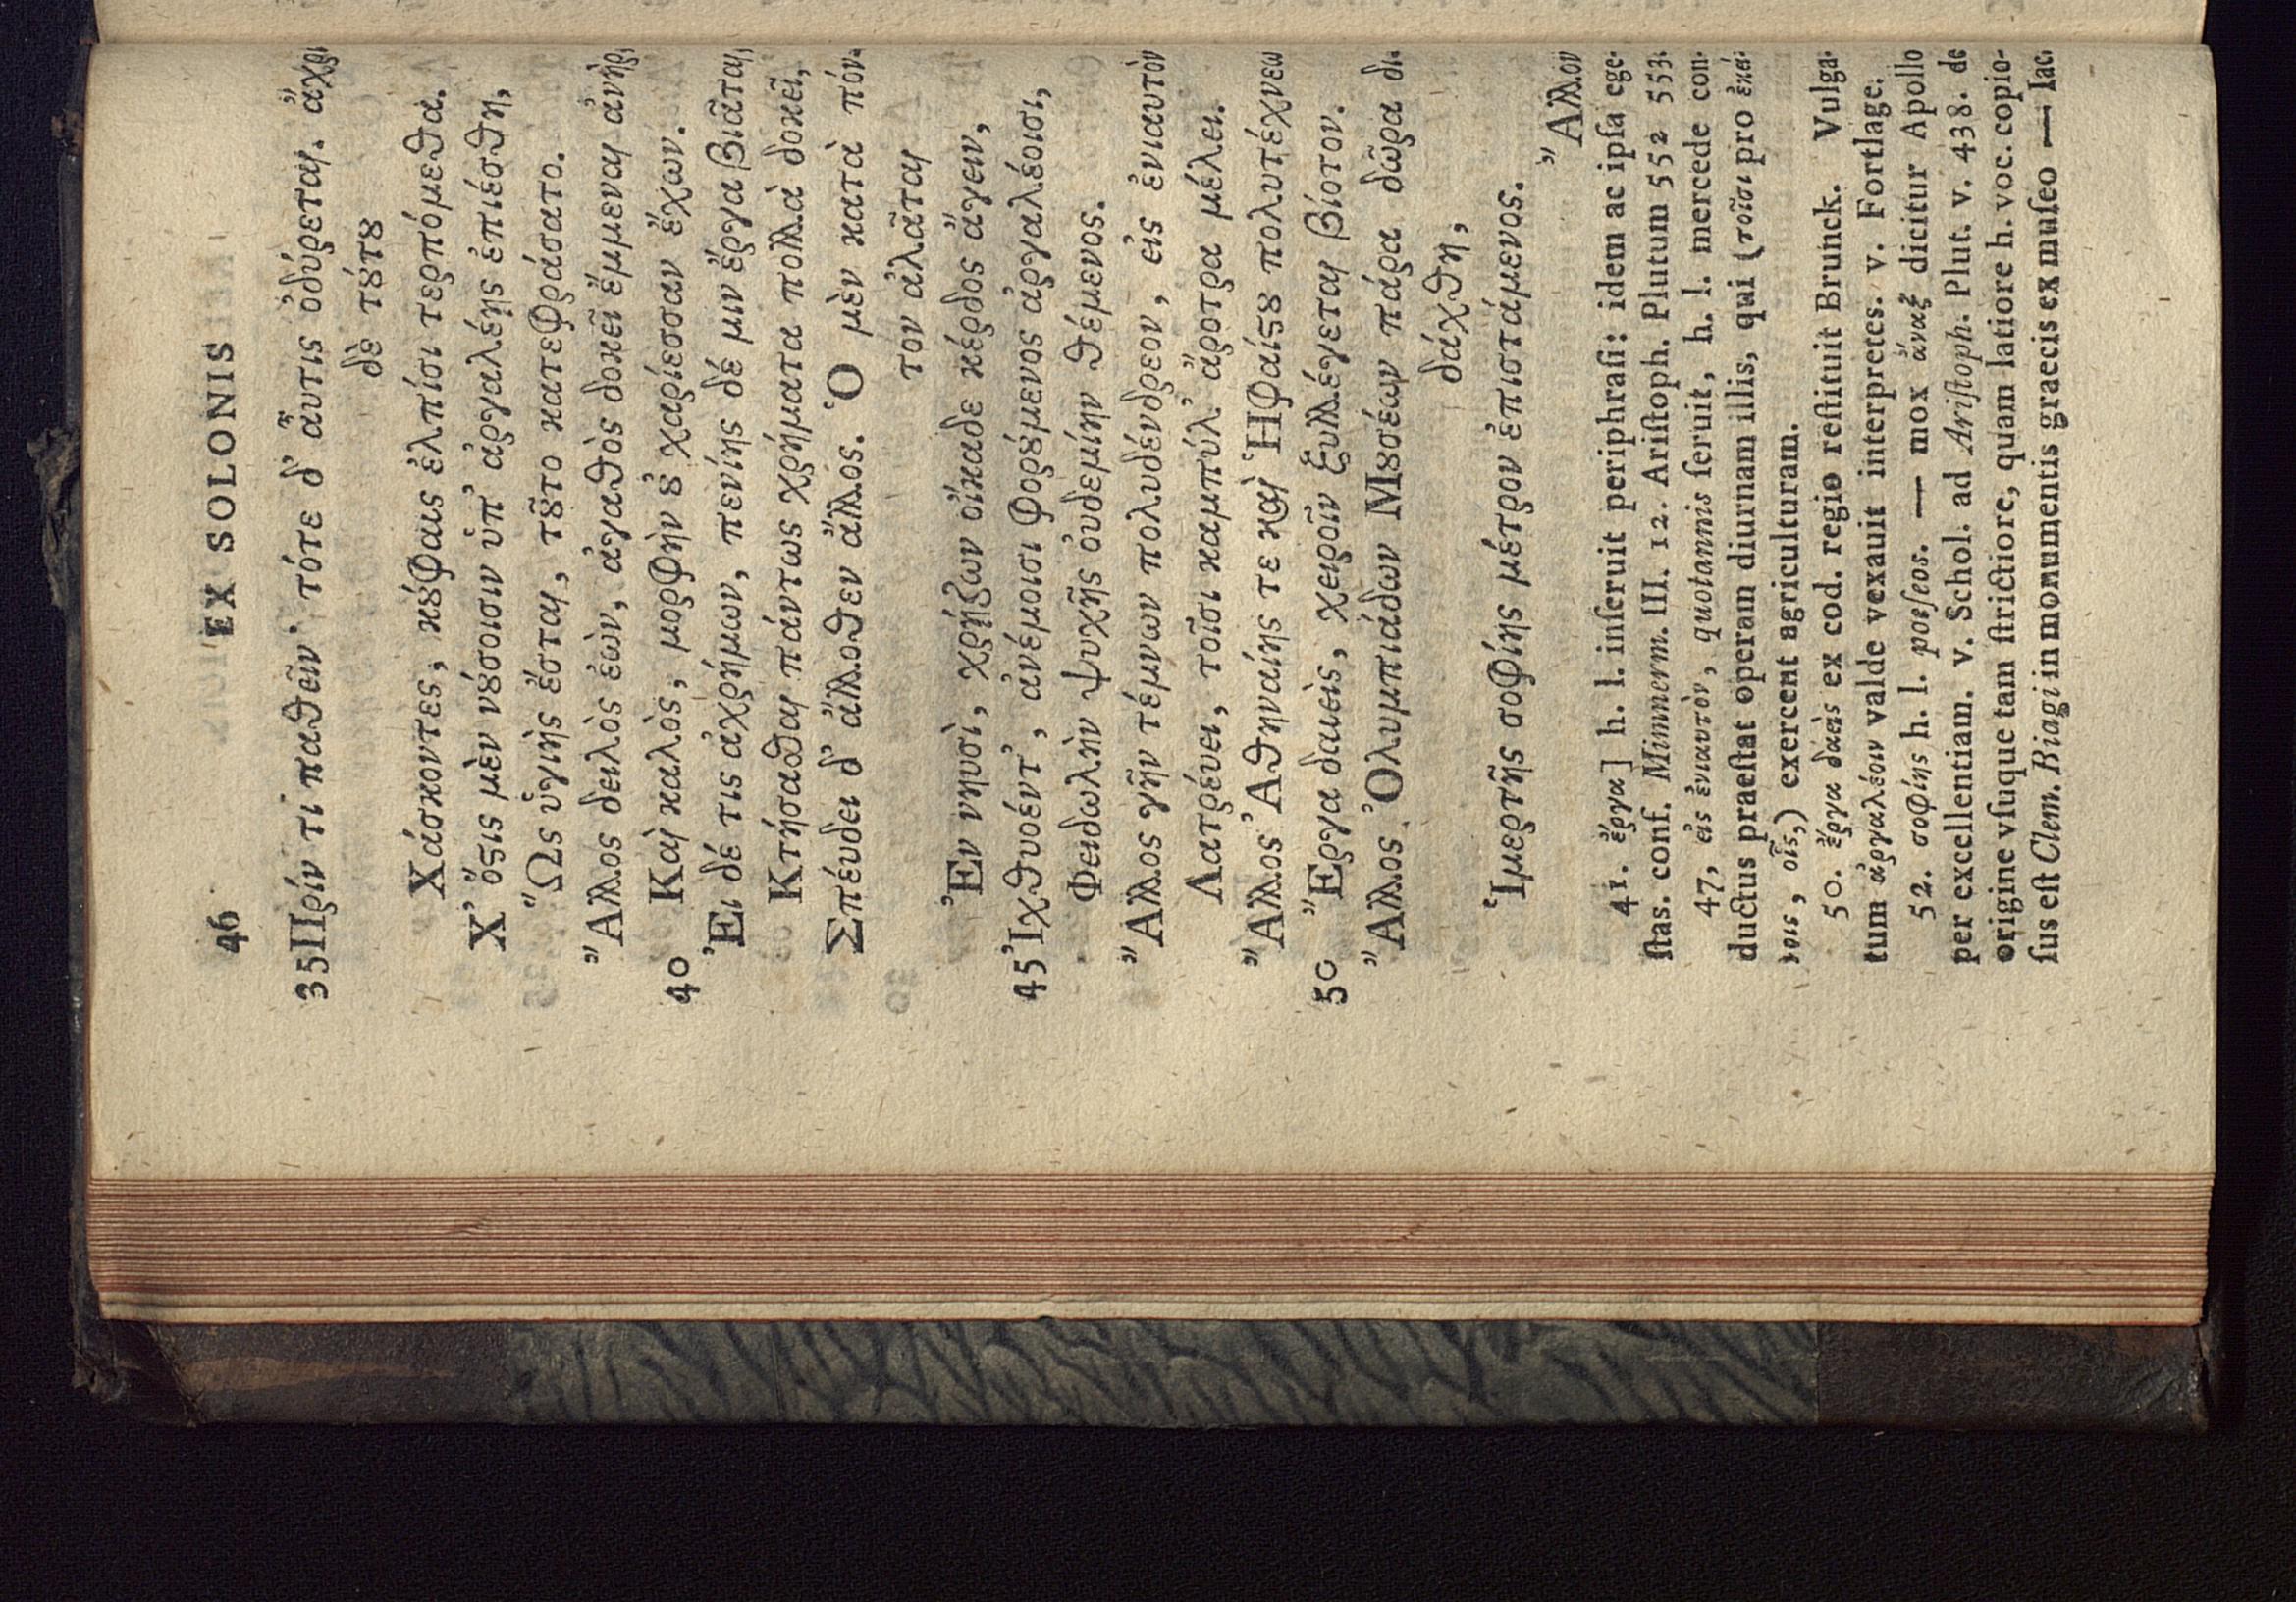 46 EX SOLONIS
35 Πρίν τι παθεῖν· τότε δ' αὖτις ὀδύρεται. ἄχρι
δὲ τούτου
Χάσκοντες, κούφαις ἐλπίσι τερπόμεθα.
Χ' ὅστις μὲν νούσοισιν ὑπ' ἀργαλέῃς ἐπιέσθη,
Ὡς ὑγιὴς ἔσται, τοῦτο κατεφράσατο.
Ἄλλος δειλὸς ἐὼν, ἀγαθὸς δοκεῖ ἔμμεναι ἀνὴρ,
40 Καὶ καλὸς, μορφὴν οὐ χαρίεσσαν ἔχων.
Ἐι δέ τις ἀχρήμων, πενίης δέ μιν ἔργα βιᾶται,
Κτήσαθαι πάντως χρήματα πολλὰ δοκεῖ,
Σπέυδει δ' ἄλλοθεν ἄλλος. Ὁ μὲν κατὰ πόν-
τον ἀλᾶται
Ἐν νηυσὶ, χρῄζων οἴκαδε κέρδος ἄγειν,
45 Ἰχθυοέντ', ἀνέμοισι φορούμενος ἀργαλέοισι,
Φειδωλὴν ψυχῆς οὐδεμίην θέμενος.
Ἄλλος γῆν τέμνων πολυδένδρεον, εἰς ἐνιαυτὸν
Λατρέυει, τοῖσι καμπύλ' ἄροτρα μέλει.
Ἄλλος Ἀθηναίης τε καὶ Ἡφαίστου πολυτέχνεω
50 Ἔργα δαεὶς, χειροῖν ξυλλέγεται βίοτον.
Ἄλλος Ὀλυμπιάδων Μουσέων πάρα δῶρα δι-
δάχθη,
Ἱμερτῆς σοφίης μέτρον ἐπιστάμενος.
Ἄλλον
41. ἔργα] h. l. inſeruit periphraſi: idem ac ipſa ege-
ſtas. conf. Mimnerm. III. 12. Ariſtoph. Plutum 552 553.
47, εἰς ἐνιαυτὸν, quotannis ſeruit, h. l. mercede con-
ductus praeſtat operam diurnam illis, qui (τοῖσι pro ἐκεί-
νοις, οἷς,) exercent agriculturam.
50. ἔργα δάεις ex cod. regio reſtituit Brunck. Vulga-
tum ἀργαλέοιν valde vexauit interpretes. v. Fortlage.
52. σοφίης h. l. poeſeos. — mox ἄναξ dicitur Apollo
per excellentiam. v. Schol. ad Ariſtoph. Plut. v. 438. de
origine vſuque tam ſtrictiore, quam latiore h. voc. copio-
ſus eſt Clem. Biagi in monumentis graecis ex muſeo — Iac.